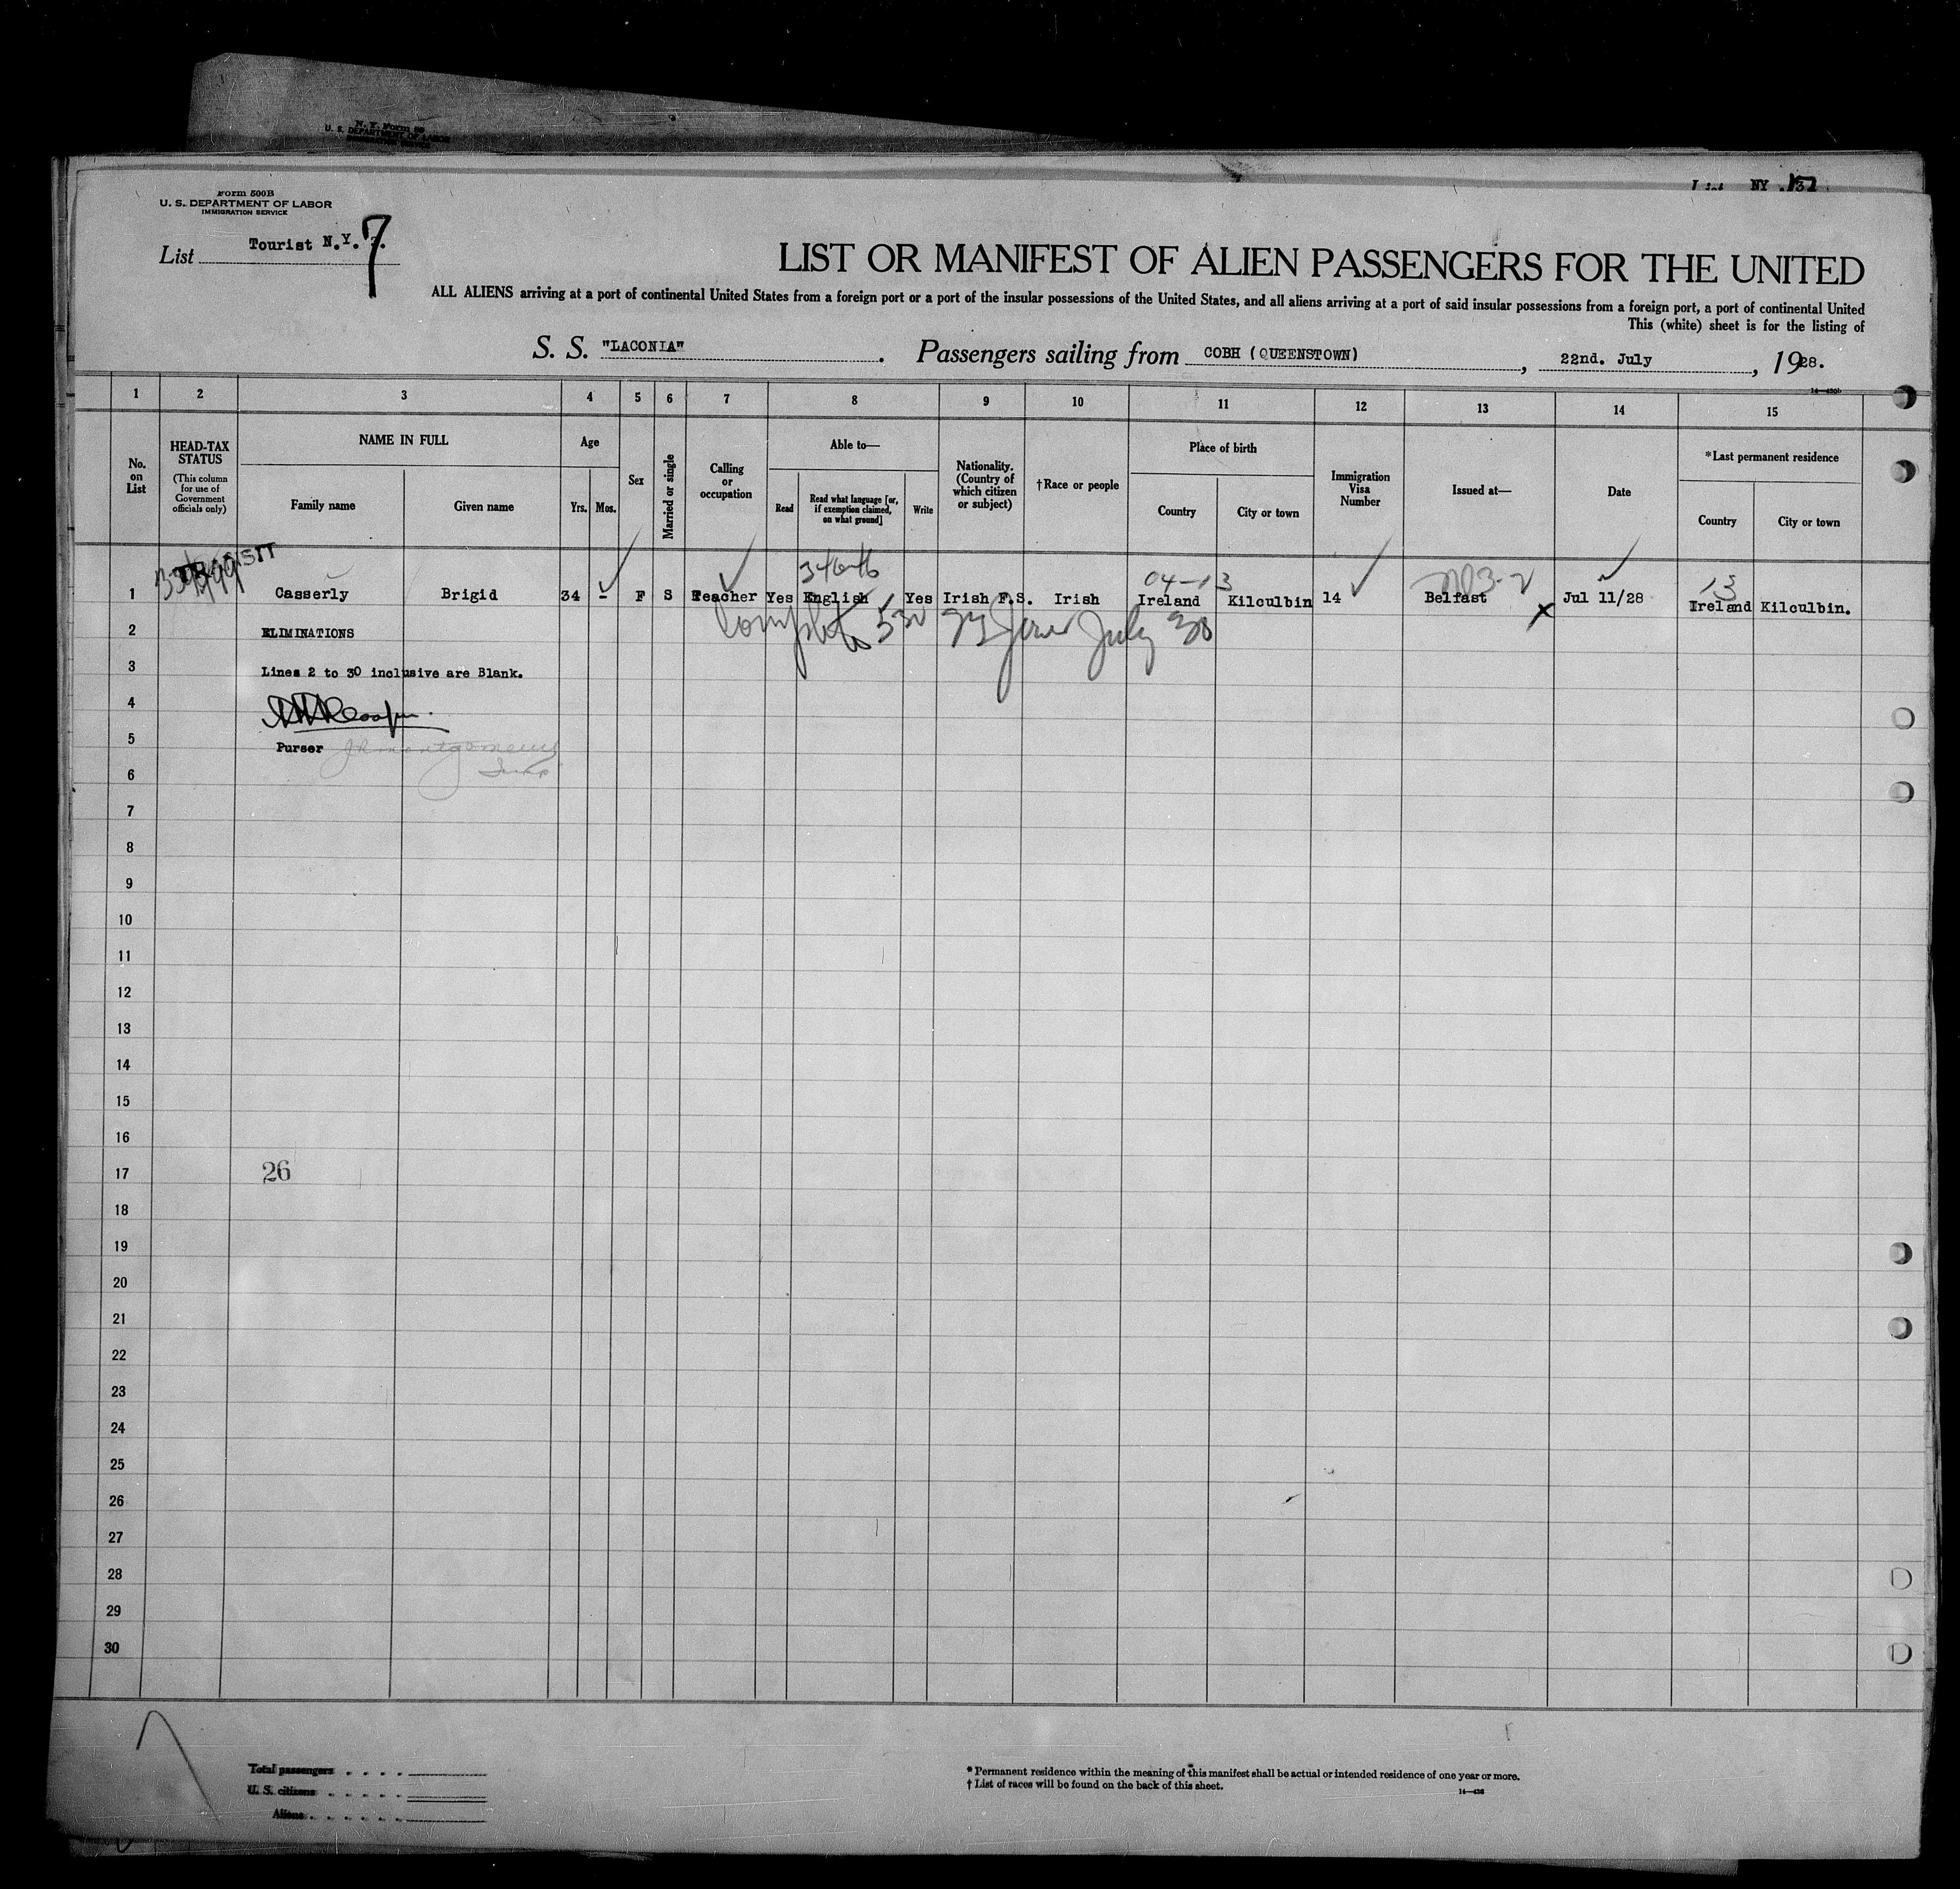 N. Y. Form
U. S. DEPARTMENT OF LABOR
IMMIGRATION SERVICE
NY
Form 500B
U. S. DEPARTMENT OF LABOR
IMMIGRATION SERVICE
List Tourist N.Y. 7
LIST OR MANIFEST OF ALIEN PASSENGERS FOR THE UNITED
ALL ALIENS arriving at a port of continental United States from a foreign port or a port of the insular possessions of the United States, and all aliens arriving at a port of said insular possessions from a foreign port, a port of continental United
This (white) sheet is for the listing of
S. S. "LACONIA". Passengers sailing from COBH (QUEENSTOWN), 22nd. July, 1928.
1 2 3 4 5 6 7 8 9 10 11 12 13 14 15
No. on List
HEAD-TAX STATUS
(This column for use of Government officials only)
NAME IN FULL
Family name
Given name
Age
Yrs.
Mos.
Sex
Married or single
Calling or occupation
Able to—
Read
Read what language [or, if exemption claimed, on what ground]
Write
Nationality. (Country of which citizen or subject)
†Race or people
Place of birth
Country
City or town
Immigration Visa Number
Issued at—
Date
*Last permanent residence
Country
City or town
TRANSIT
04-13
13
1 Casserly Brigid 34 - F S Teacher Yes English Yes Irish F.S. Irish Ireland Kilculbin 14 Belfast Jul 11/28 Ireland Kilculbin.
July 30
2 ELIMINATIONS
3 Lines 2 to 30 inclusive are Blank.
4
5 Purser
6
7
8
9
10
11
12
13
14
15
16
17 26
18
19
20
21
22
23
24
25
26
27
28
29
30
Total passengers
U. S. citizens
Aliens
* Permanent residence within the meaning of this manifest shall be actual or intended residence of one year or more.
† List of races will be found on the back of this sheet.